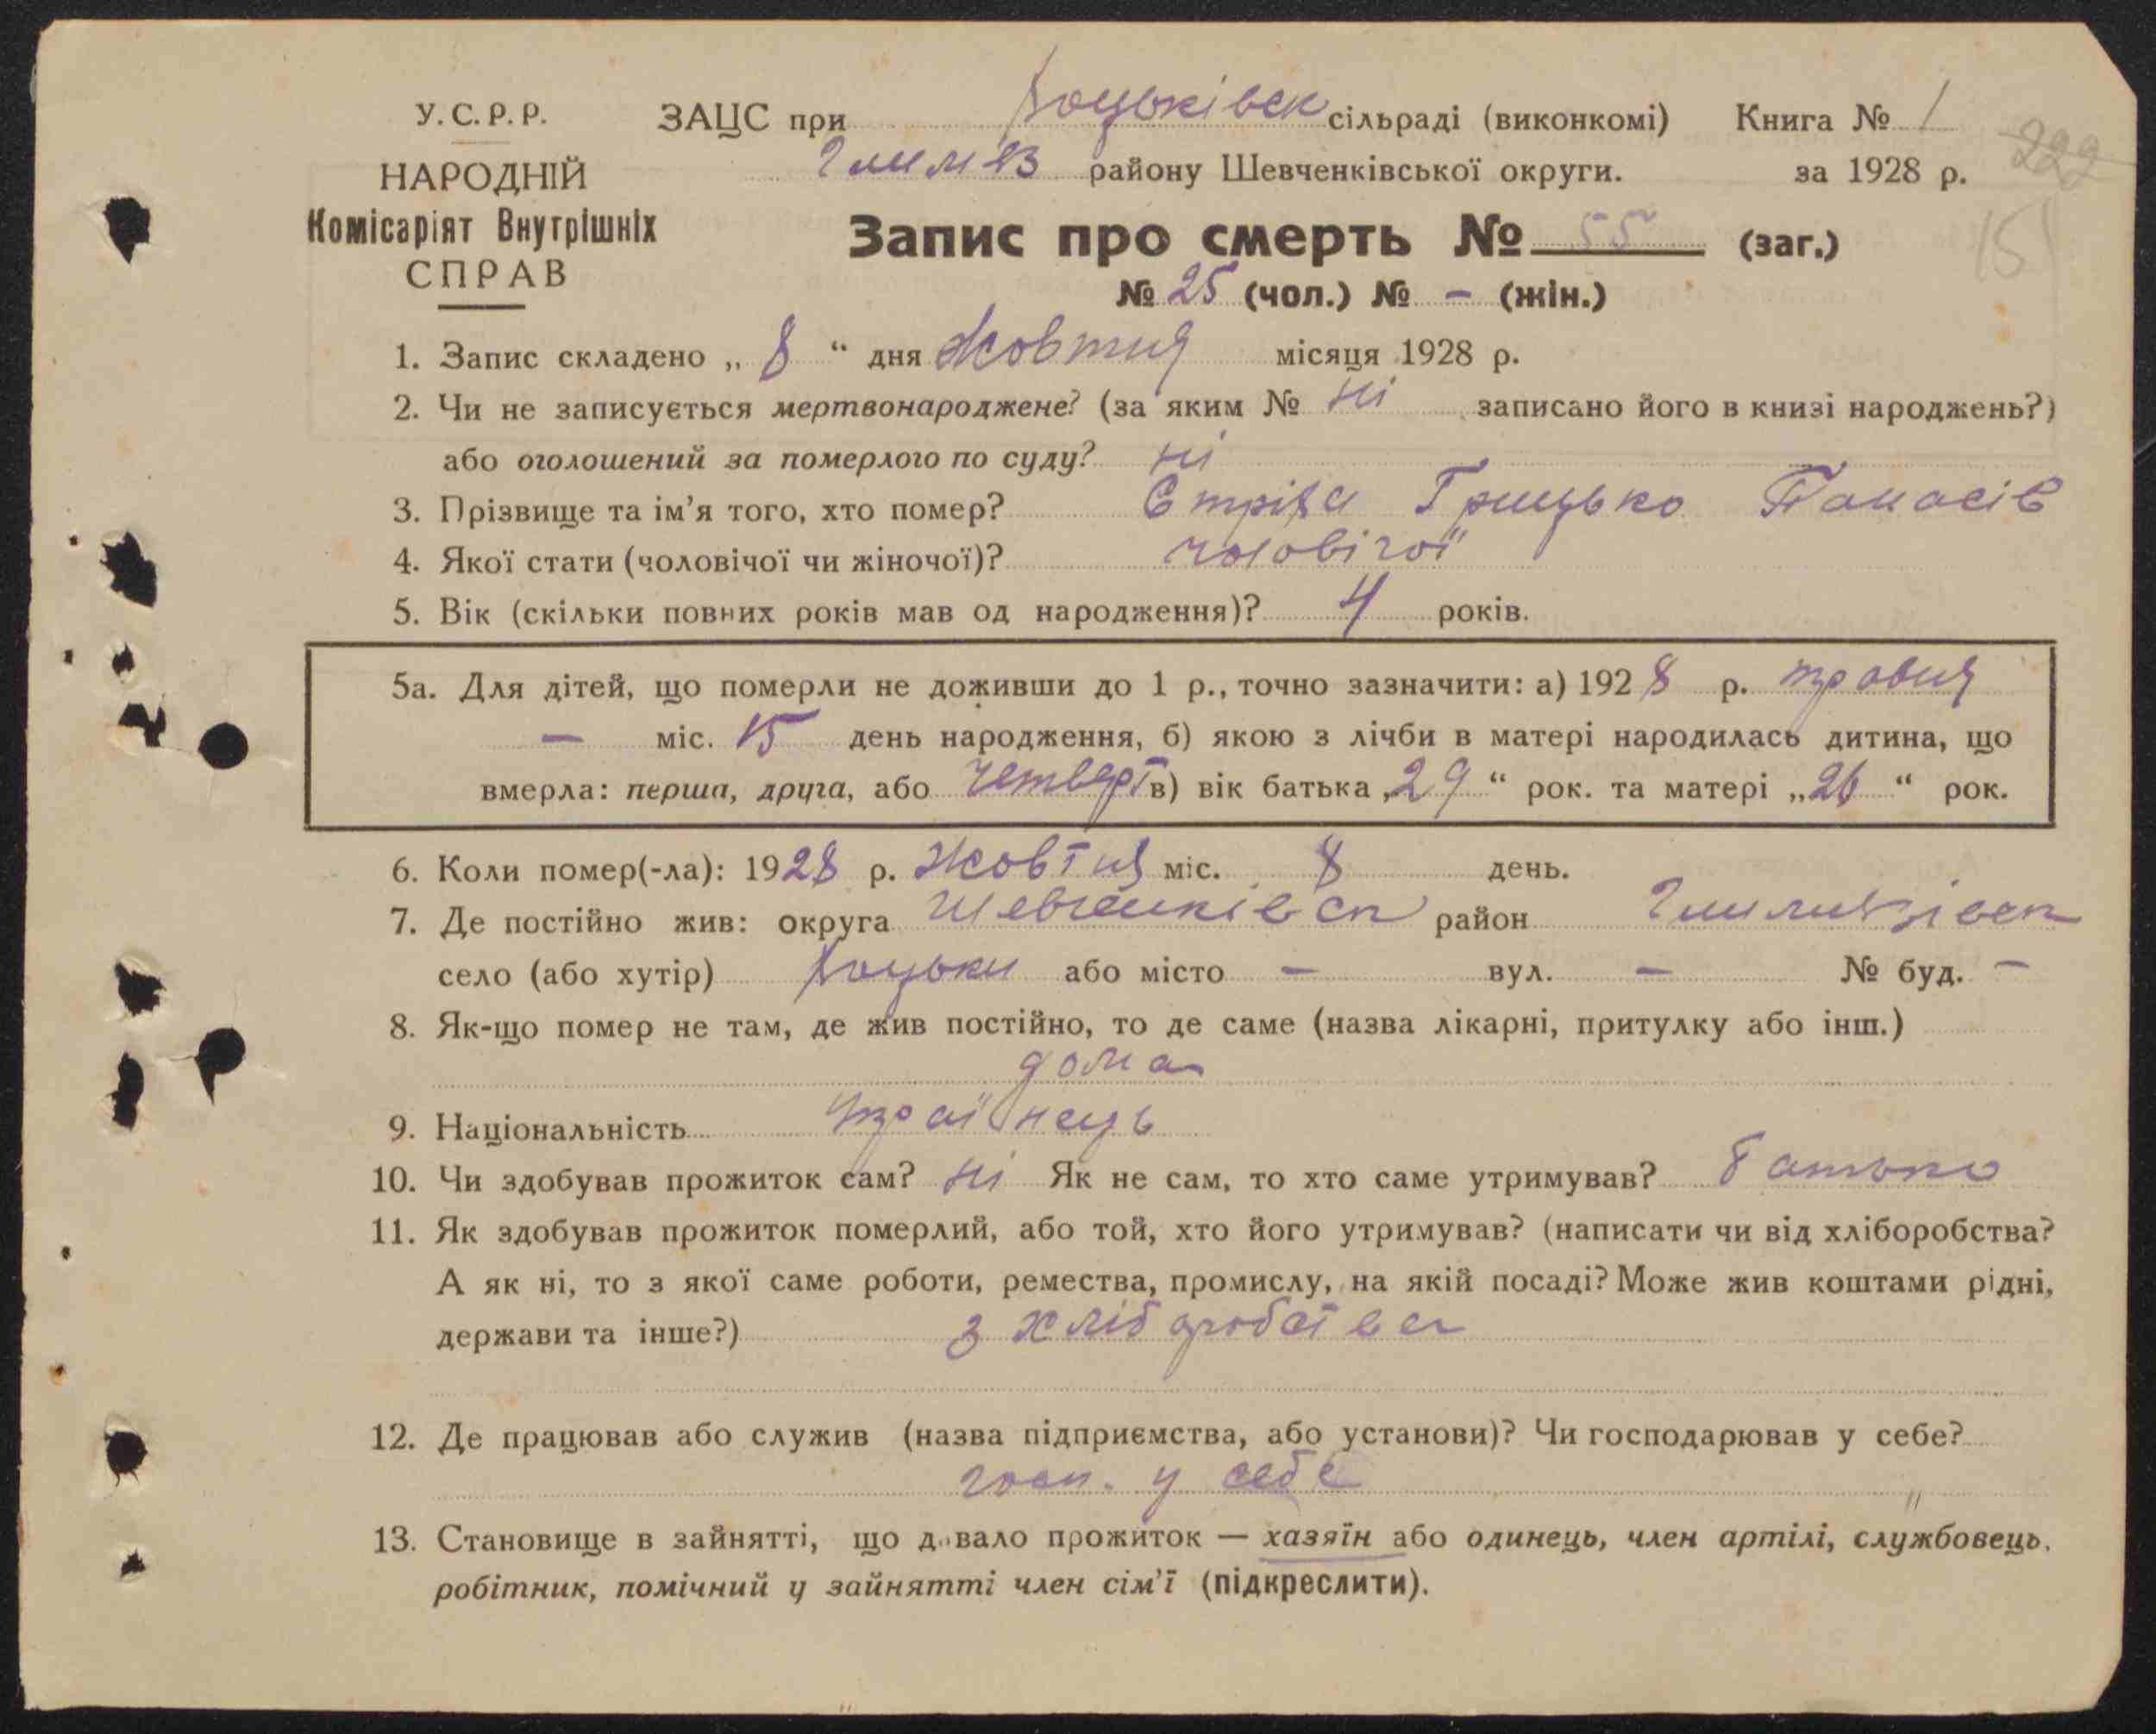 У.С.Р.Р. ЗАЦС при Коцьківск сільраді (виконкомі) Книга № 1
НАРОДНІЙ району Шевченківської округи. за 1928 р. 222
Комісаріят Внутрішніх
СПРАВ
Запис про смерть № 55 (заг.) 151
№ 25 (чол.) № – (жін.)
1. Запис складено „ 8 “ дня Жовтня місяця 1928 р.
2. Чи не записується мертвонароджене? (за яким № ні записано його в книзі народжень?)
або оголошений за померлого по суду? ні
3. Прізвище та ім’я того, хто помер? Грицько Панасів
4. Якої стати (чоловічої чи жіночої)? чоловічої
5. Вік (скільки повних років мав од народження)? 4 років.
5а. Для дітей, що померли не доживши до 1 р., точно зазначити: а) 1928 р. травня
– міс. 15 день народження, б) якою з лічби в матері народилась дитина, що
вмерла: перша, друга, або четверт в) вік батька „29“ рок. та матері „26“ рок.
6. Коли помер(-ла): 1928 р. Жовтня міс. 8 день.
7. Де постійно жив: округа Шевченківск район
село (або хутір) Коцьки або місто – вул. – № буд. –
8. Як-що помер не там, де жив постійно, то де саме (назва лікарні, притулку або інш.)
дома
9. Національність українець
10. Чи здобував прожиток сам? ні Як не сам, то хто саме утримував? батько
11. Як здобував прожиток померлий, або той, хто його утримував? (написати чи від хліборобства?
А як ні, то з якої саме роботи, ремества, промислу, на якій посаді? Може жив коштами рідні,
держави та інше?) з хліборобства
12. Де працював або служив (назва підприємства, або установи)? Чи господарював у себе?
госп. у себе
13. Становище в зайнятті, що давало прожиток — хазяїн або одинець, член артілі, службовець,
робітник, помічний у зайнятті член сім’ї (підкреслити).